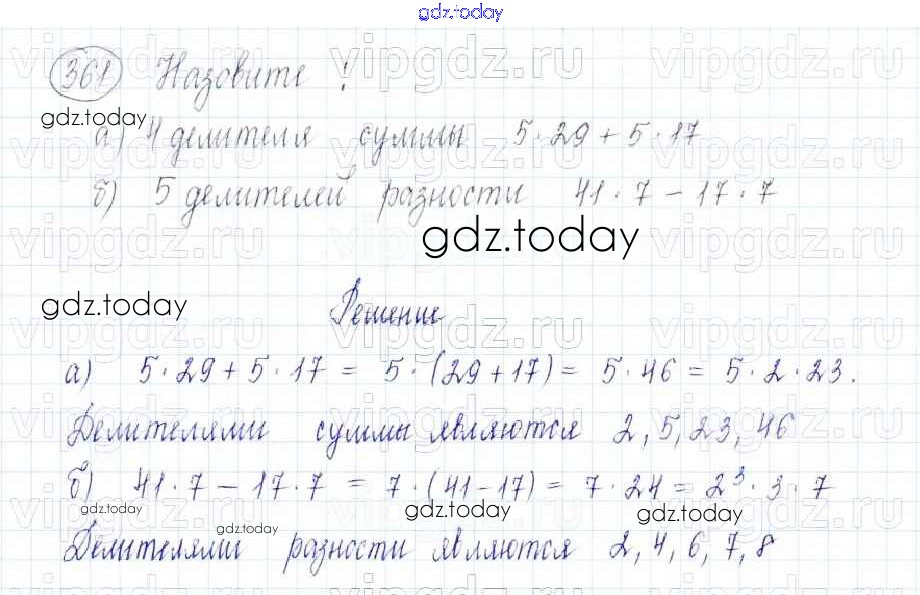 gdz.today
361 Назовите :
gdz.today
а) 4 делителя суммы 5·29 + 5·17
б) 5 делителей разности 41·7 − 17·7
gdz.today
gdz.today
Решение
а) 5·29 + 5·17 = 5·(29+17) = 5·46 = 5·2·23.
Делителями суммы являются 2, 5, 23, 46
б) 41·7 − 17·7 = 7·(41−17) = 7·24 = 2³·3·7
gdz.today gdz.today gdz.today gdz.today
Делителями разности являются 2, 4, 6, 7, 8
vipgdz.ru vipgdz.ru vipgdz.ru